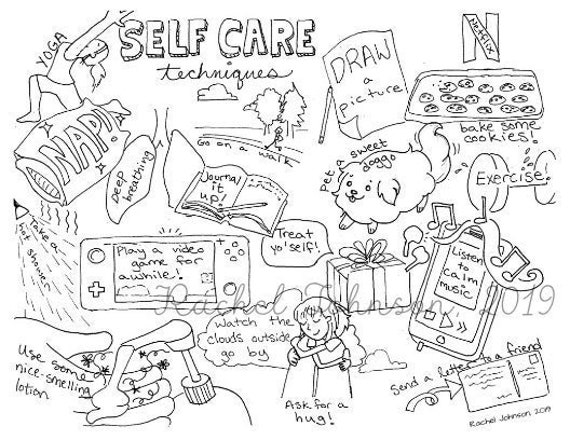 SELF CARE
techniques
YOGA
NAP!
Deep
breathing
Go on a walk
DRAW
a
picture
N
Netflix
bake some
cookies!
Pet a sweet
doggo
Exercise!
Journal
it
up!
Take a
hot shower
Play a video
game for
awhile!
Treat
yo'self!
Listen
to
calm
music
Rachel Johnson, 2019
Use some
nice-smelling
lotion
Watch the
clouds outside
go by
Ask for a
hug!
Send a letter to a friend
Rachel Johnson 2019